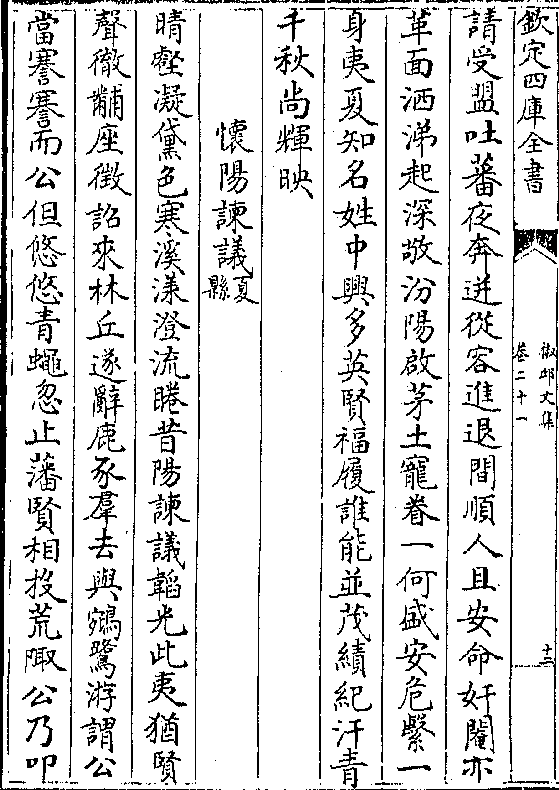 欽定四庫全書
椒邱文集
卷二十一
十三
請受盟吐蕃夜奔迸從容進退間順人且安命奸閹亦
革面洒涕起深敬汾陽啟茅土寵眷一何盛安危繫一
身夷夏知名姓中興多英賢福履誰能並茂績紀汗青
千秋尚輝映
懷陽諫議夏縣
晴壑凝黛色寒溪漾澄流睠昔陽諫議韜光此夷猶賢
聲徹黼座徵詔來林丘遂辭鹿豕羣去與鵷鷺游謂公
當謇謇而公但悠悠青蠅忽止藩賢相投荒陬公乃叩